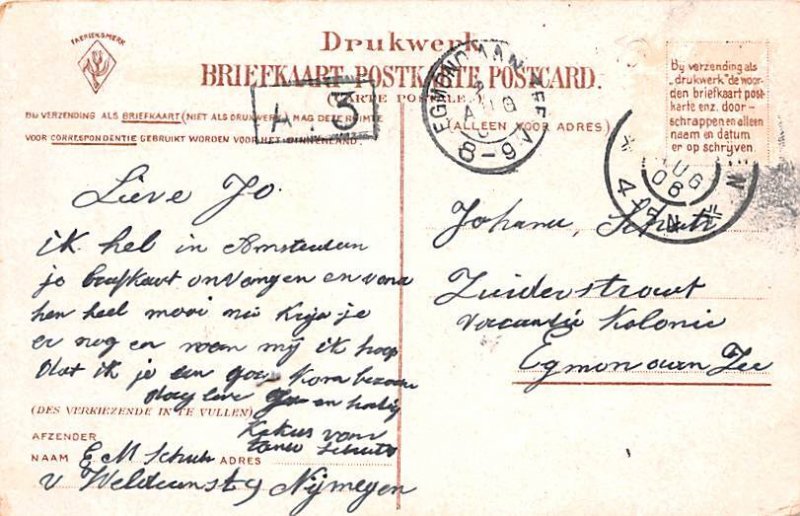 FABRIEKSMERK
Drukwerk
BRIEFKAART POSTKARTE POSTCARD.
CARTE POSTALE
BIJ VERZENDING ALS BRIEFKAART (NIET ALS DRUKWERK) MAG DEZE RUIMTE
VOOR CORRESPONDENTIE GEBRUIKT WORDEN VOOR HET BINNENLAND.
(ALLEEN VOOR ADRES)
A.3
EGMOND AAN ZEE
AUG
8-9 V
Bij verzending als
"drukwerk" de woor-
den briefkaart post-
karte enz. door-
schrappen en alleen
naam en datum
er op schrijven.
AUG
06
4-5 N
Lieve Jo.
ik heb in Amsterdam
je brefkaart ontvangen en vond
hen heel mooi nu Krijg je
er nog en van mij ik hoop
dat ik je een
dag lieve Jo en hartig
Kukus van
tante Schuts
(DES VERKIEZENDE IN TE VULLEN)
AFZENDER
NAAM E M Schuts ADRES
v Weldeunst 9 Nijmegen
Johanna Schuts
Zuiderstraat
Vacantie Kolonie
Egmon aan Zee